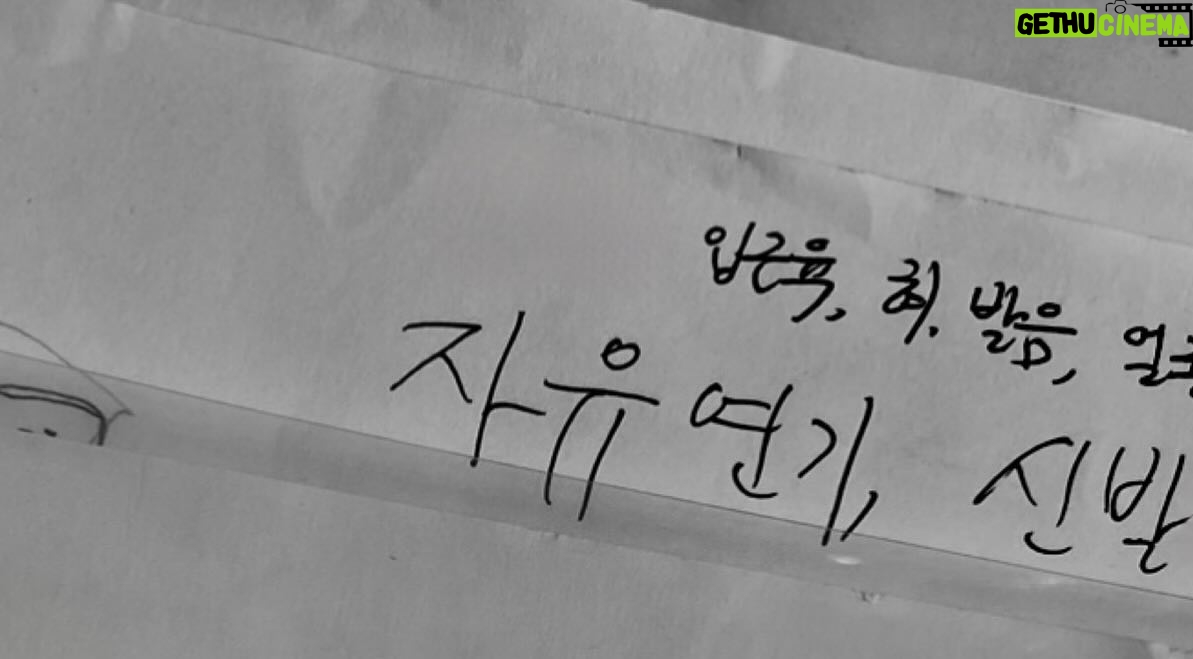 GETHUCINEMA
입근육, 혀. 발음, 얼굴
자유연기, 신발